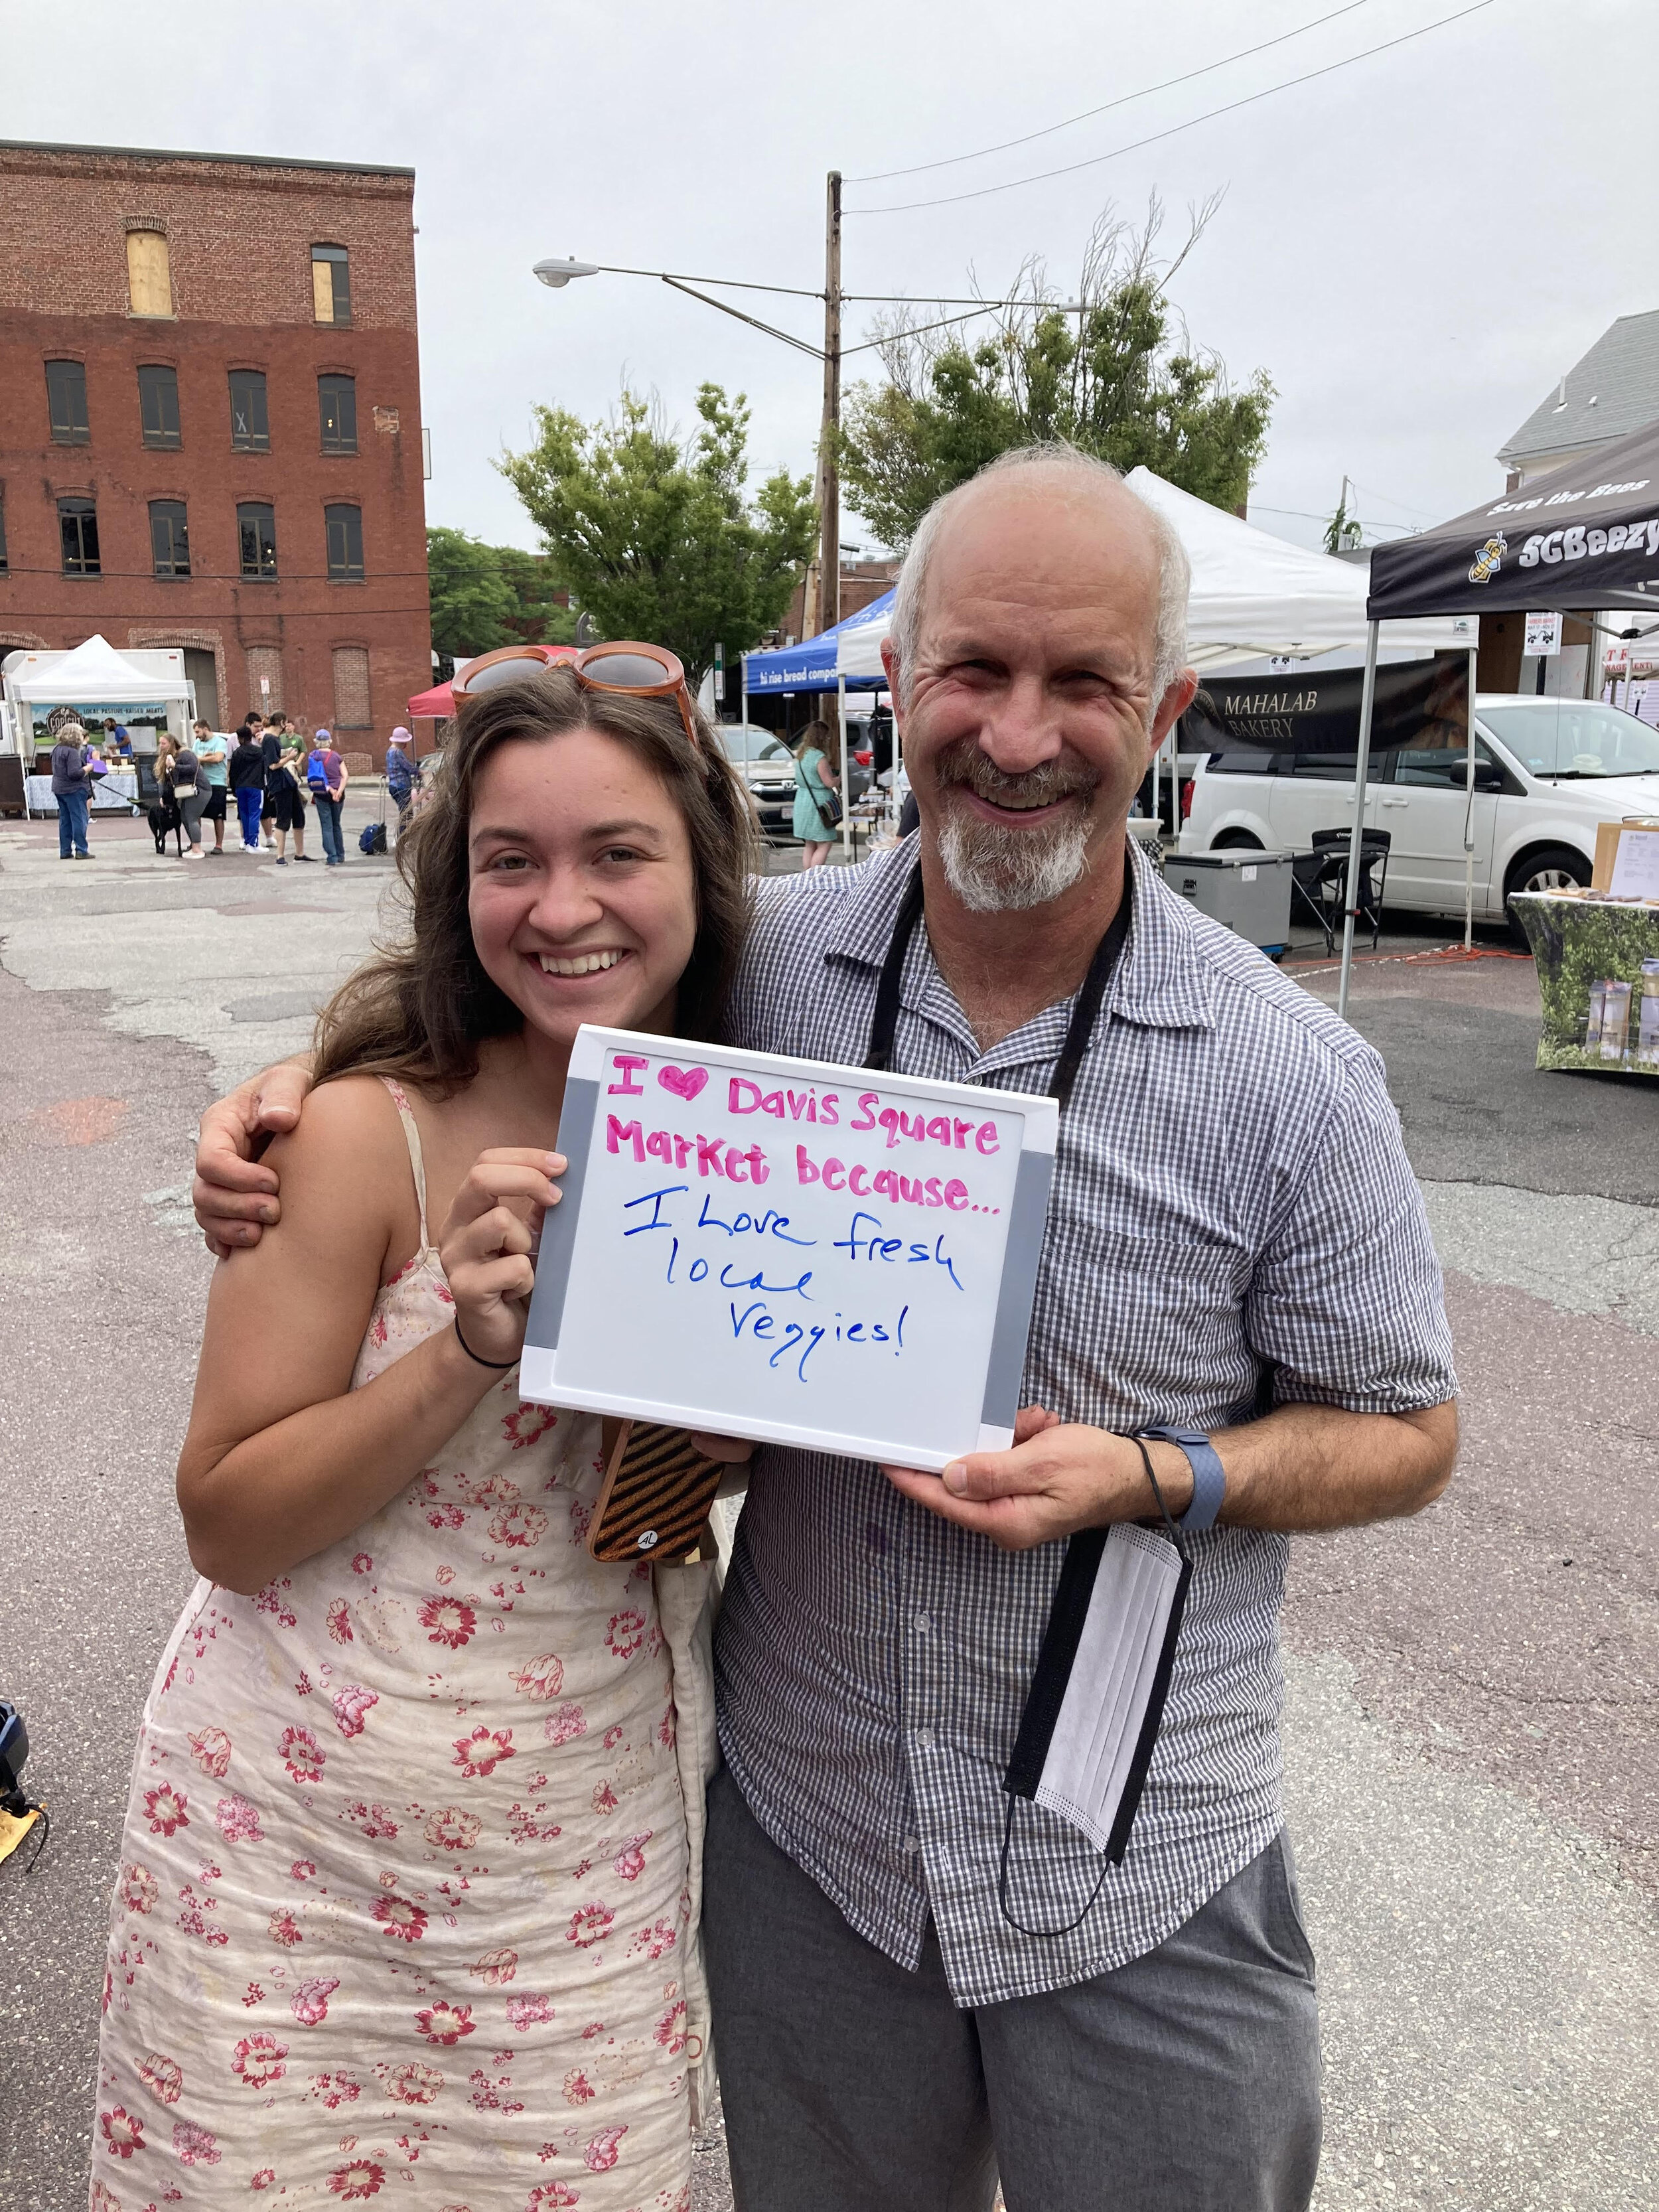 Save the Bees
SCBeezy
hi rise bread compa
MAHALAB
BAKERY
LOCAL PASTURE-RAISED MEATS
I ♥ Davis Square
Market because...
I Love fresh
local
veggies!
AL